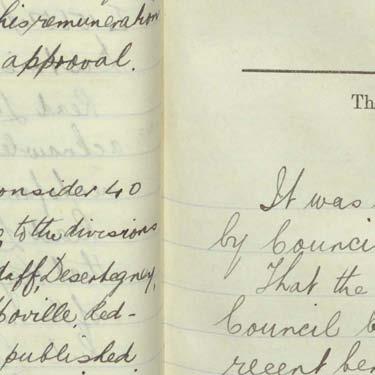 his remuneration
approval.
onsider 40
to the divisions
daff, Desertegney,
boville, Red-
published
Th
It was
by Counci
That the
Council
recent be